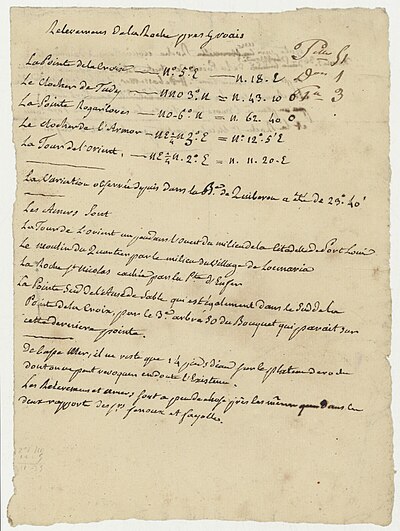 Relevemens De la Roche près Groais
La Pointe de la Croix — N° 5° E — n. 18. E
Le Clocher de Tudy — nno 3° n = n. 43. 10 O
La Pointe — no-6° n = n. 62. 40 O
Le clocher de l'Armor — n.E ¼ n 2° E = N° 12° 5' E
La Tour de l'orient, — nE ¼ n. 2° E = n. 11. 20 - E
La Variation observée depuis dans la B.e de Quiberon a été de 23° 40'
Les Amers Sont
La Tour de L'orient un peu dans l'ouest du milieu de la Citadelle du Port Louis
Le moulin du Quartier par le milieu du Village de Locmaria
La Roche St Nicolas cachée par la Pte d'Enfer
La Pointe Sud de l'Anse de Sable qui est également dans le Sud de la
Pointe de la Croix, par le 3me arbre SO du Bouquet qui paroit sur
cette derniere pointe.
De basse Mer, il ne reste que 14 pieds d'eau sur le plateau de ro
dont on ne peut revoquer en doute l'Existence.
Les Relevemens et amers sont a peu de chose près les mêmes que dans le
deux rapport des Srs et